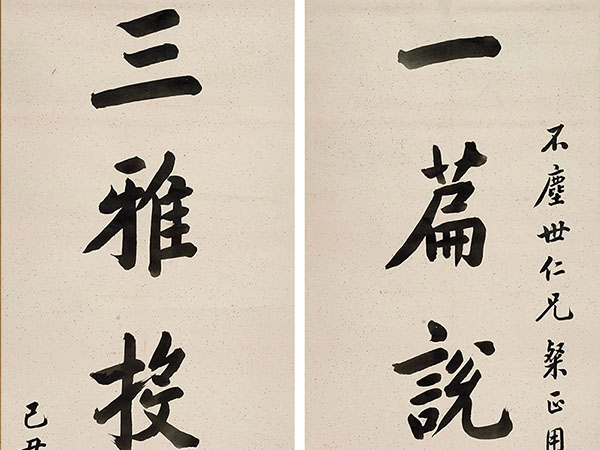 不塵世仁兄粲正用
一篇說
三雅投
己丑